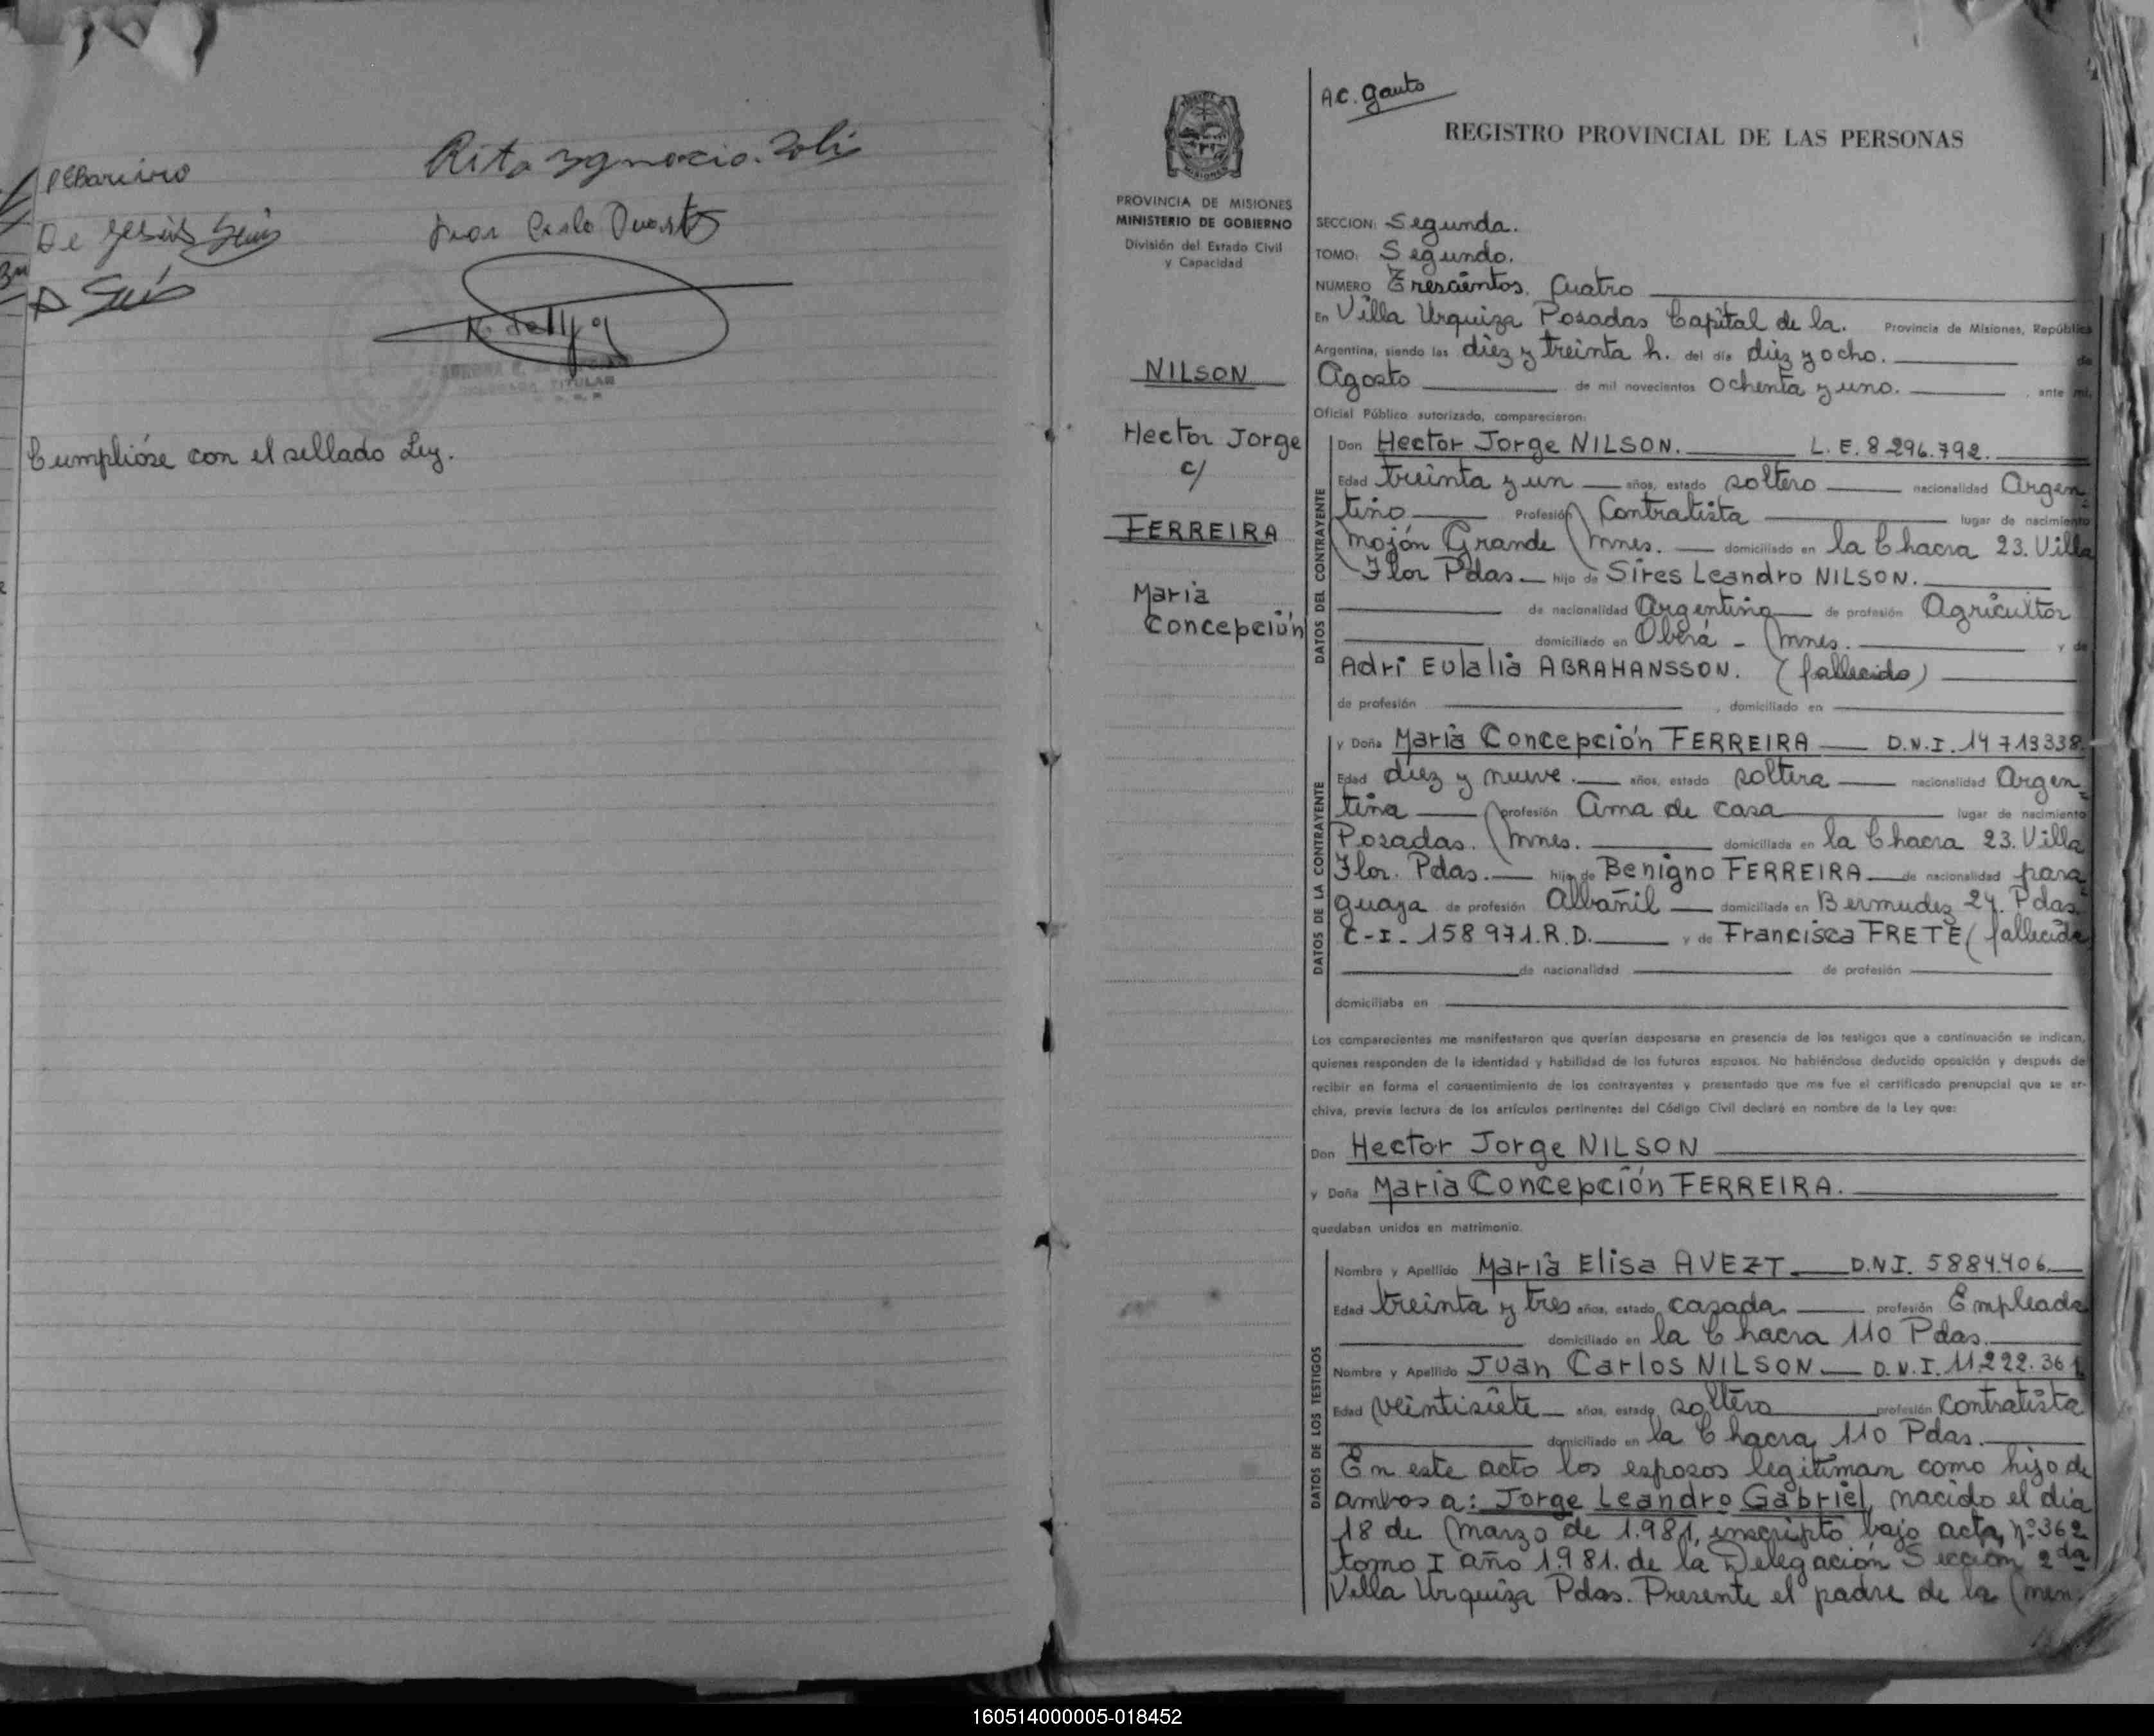 De Jesús
Rita Ygnacio Solis
Juan Carlo Duarte
TITULAR
Cumplióse con el sellado Ley.
A.C. Gauto
REGISTRO PROVINCIAL DE LAS PERSONAS
PROVINCIA DE MISIONES
MINISTERIO DE GOBIERNO
División del Estado Civil
y Capacidad
NILSON
Hector Jorge
c/
FERREIRA
Maria
Concepción
SECCION: Segunda.
TOMO: Segundo.
NUMERO Trescientos. Cuatro
En Villa Urquiza Posadas Capital de la. Provincia de Misiones, República
Argentina, siendo las diez y treinta h. del día diez y ocho. de
Agosto de mil novecientos ochenta y uno. , ante mí,
Oficial Público autorizado, comparecieron:
DATOS DEL CONTRAYENTE
Don Hector Jorge NILSON. L. E. 8.296.792.
Edad treinta y un años, estado soltero nacionalidad Argen-
tino Profesión Contratista lugar de nacimiento
Mojón Grande Mnes. domiciliado en la Chacra 23. Villa
Flor Pdas hijo de Sires Leandro NILSON.
de nacionalidad Argentino de profesión Agricultor
domiciliado en Oberá - Mnes. y de
Adri Eulalia ABRAHANSSON. (fallecido)
de profesión , domiciliado en
DATOS DE LA CONTRAYENTE
y Doña Maria Concepción FERREIRA D.N.I. 14 713338.
Edad diez y nueve. años, estado soltera nacionalidad Argen-
tina profesión Ama de casa lugar de nacimiento
Posadas. Mnes. domiciliada en la Chacra 23. Villa
Flor. Pdas. hija de Benigno FERREIRA de nacionalidad para
guaya de profesión Albañil domiciliado en Bermudez 24. Pdas.
C-I- 158971.R.D. y de Francisca FRETE (fallecida
de nacionalidad de profesión
domiciliaba en
Los comparecientes me manifestaron que querían desposarse en presencia de los testigos que a continuación se indican,
quienes responden de la identidad y habilidad de los futuros esposos. No habiéndose deducido oposición y después de
recibir en forma el consentimiento de los contrayentes y presentado que me fue el certificado prenupcial que se ar-
chiva, previa lectura de los artículos pertinentes del Código Civil declaré en nombre de la Ley que:
Don Hector Jorge NILSON
y Doña Maria Concepción FERREIRA.
quedaban unidos en matrimonio.
DATOS DE LOS TESTIGOS
Nombre y Apellido Maria Elisa AVEZT D.N.I. 5884.406.
Edad treinta y tres años, estado casada profesión Empleada
domiciliado en la Chacra 110 Pdas.
Nombre y Apellido Juan Carlos NILSON D.N.I. 11.222.361
Edad veintisiete años, estado soltero profesión Contratista
domiciliado en la Chacra 110 Pdas.
En este acto los esposos legitiman como hijo de
ambos a: Jorge Leandro Gabriel, nacido el día
18 de Marzo de 1.981, inscripto bajo acta nº 362
tomo I año 1981. de la Delegación Sección 2da
Villa Urquiza Pdas. Presente el padre de la Men.
160514000005-018452